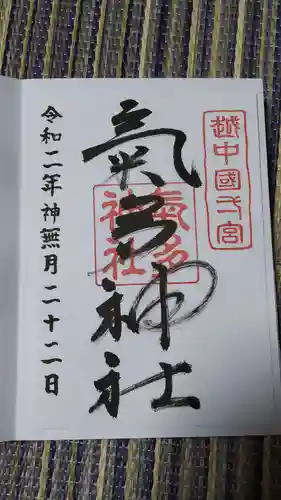 越中國弌宮
氣多神社
氣多神社
令和二年神無月二十二日